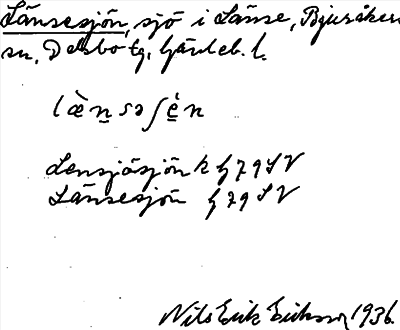 Länsesjön, sjö i Länse, Bjuråkers
sn, Delsbo tg, Gävleb. l.
Lensjösjön k G 79 S V
Länsesjön G 79 S V
Nils Erik Eriksson 1936.